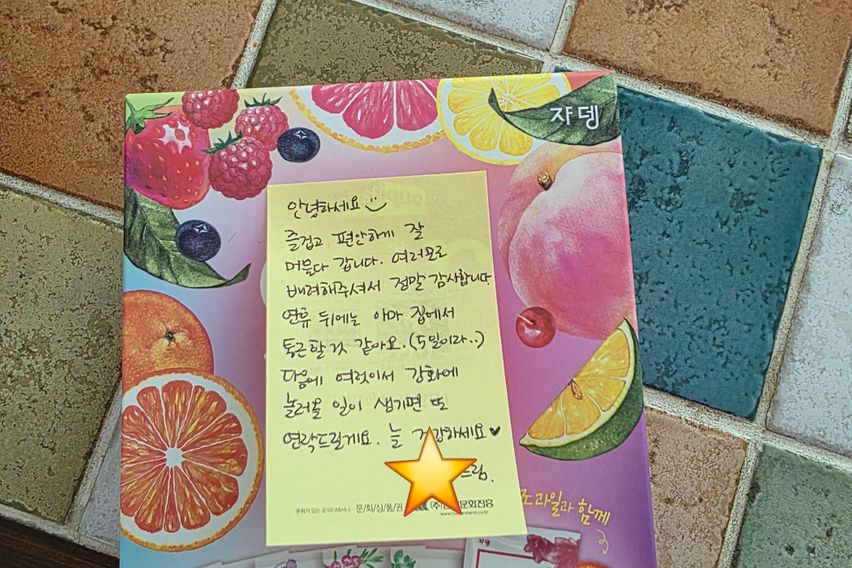 쟈뎅
안녕하세요
즐겁고 편안하게 잘
머물다 갑니다. 여러모로
배려해주셔서 정말 감사합니다
연휴 뒤에는 아마 집에서
퇴근할 것 같아요.(5일이라..)
다음에 여럿이서 강화에
놀러올 일이 생기면 또
연락드릴게요. 늘 건강하세요♥
드림.
문화가 있는 곳 어디에서나 - 문/화/상/품/권
과일과 함께
쟈뎅